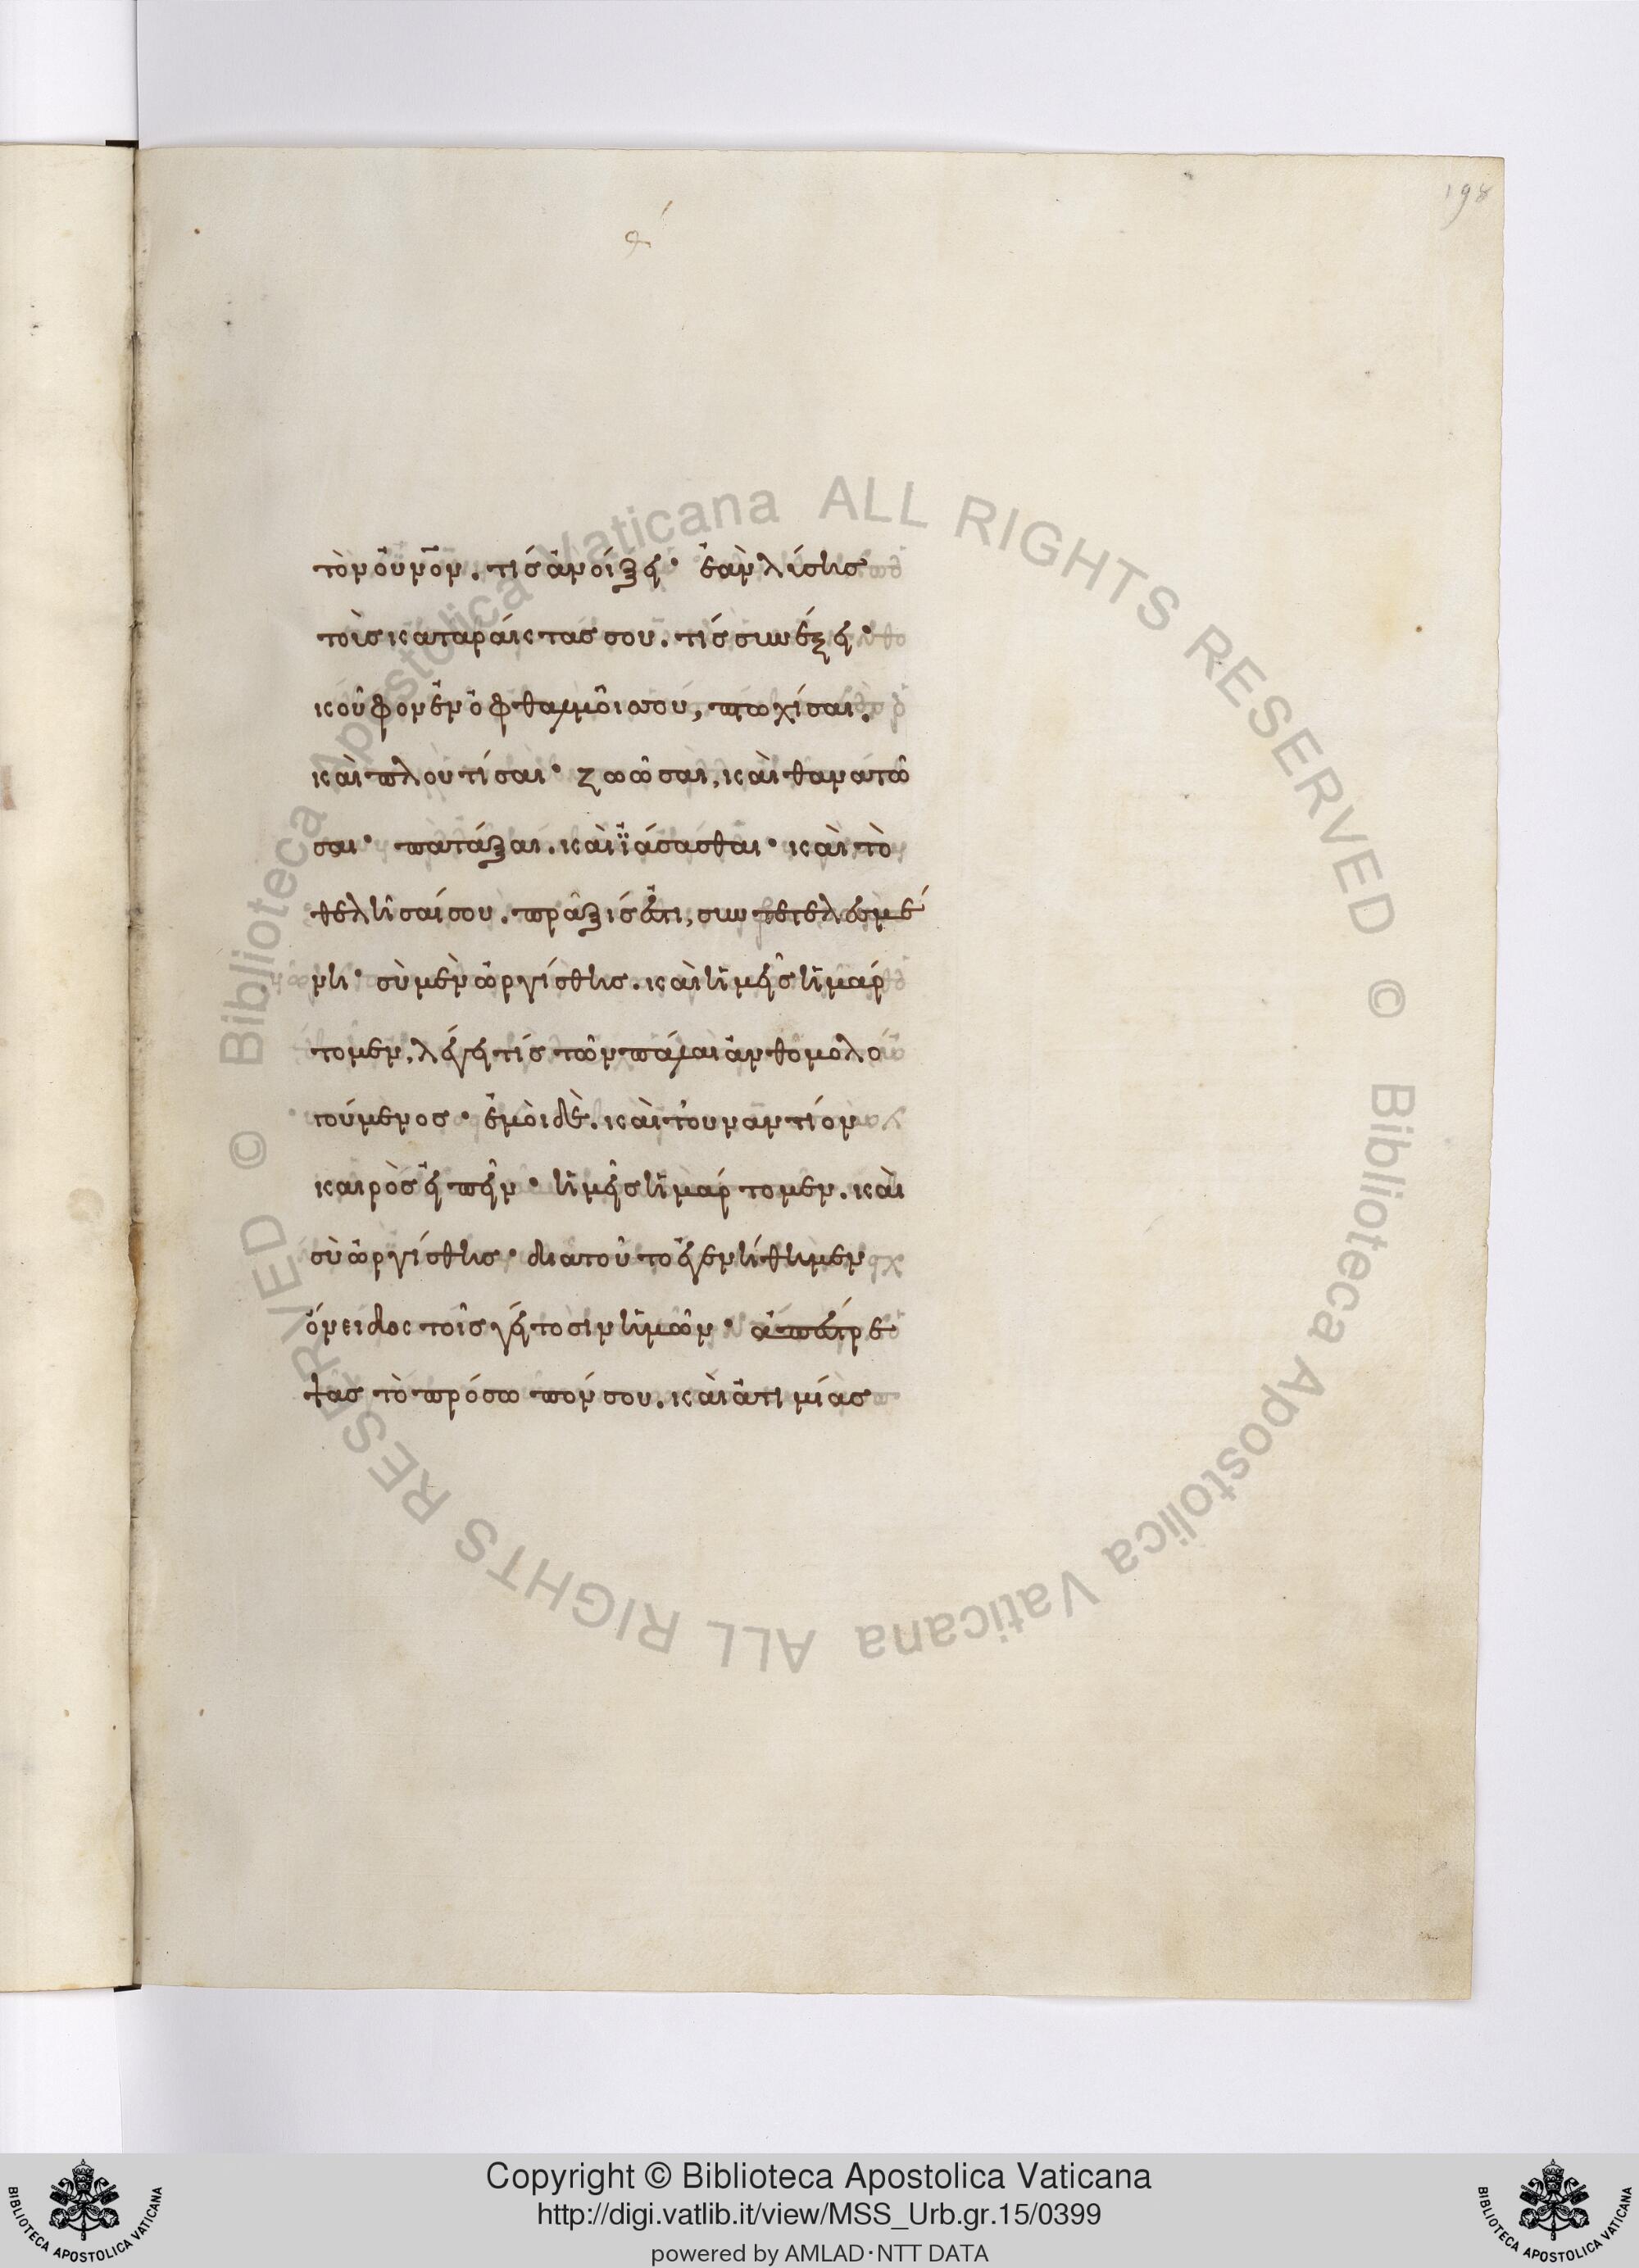 198
τὸν οὐνὸν. τίς ἀνοίξει· ἐὰν κλείσηις
τοὺς καταράκτας σου. τίς συνέξει·
κοῦφον ἐν ὀφθαλμοῖς σου, πτωχίσαι.
καὶ πλουτίσαι· ζωῶσαι, καὶ θανατῶ
σαι· πατάξαι. καὶ ϊάσασθαι· καὶ τὸ
θελῆσαί σου. πρᾶξίς ἐστι, συντετελεσμέ
νη· σὺ μὲν ὠργίσθης. καὶ ἡμεῖς ἡμάρ
τομεν, λέγει τίς τῶν πάλαι ἀνθομολο
γούμενος· ἐμοὶ δὲ. καὶ τουναντίον
καιρὸς εἰπεῖν· ἡμεῖς ἡμάρτομεν. καὶ
σὺ ὠργίσθης· διατοῦτο ἐγενήθημεν
ὄνειδος τοῖς γείτοσιν ἡμῶν· ἀπέστρε
ψας τὸ πρόσωπόν σου. καὶ ἀτιμίας
Copyright © Biblioteca Apostolica Vaticana
http://digi.vatlib.it/view/MSS_Urb.gr.15/0399
powered by AMLAD·NTT DATA
BIBLIOTECA APOSTOLICA VATICANA
BIBLIOTECA APOSTOLICA VATICANA
© Biblioteca Apostolica Vaticana ALL RIGHTS RESERVED
© Biblioteca Apostolica Vaticana ALL RIGHTS RESERVED